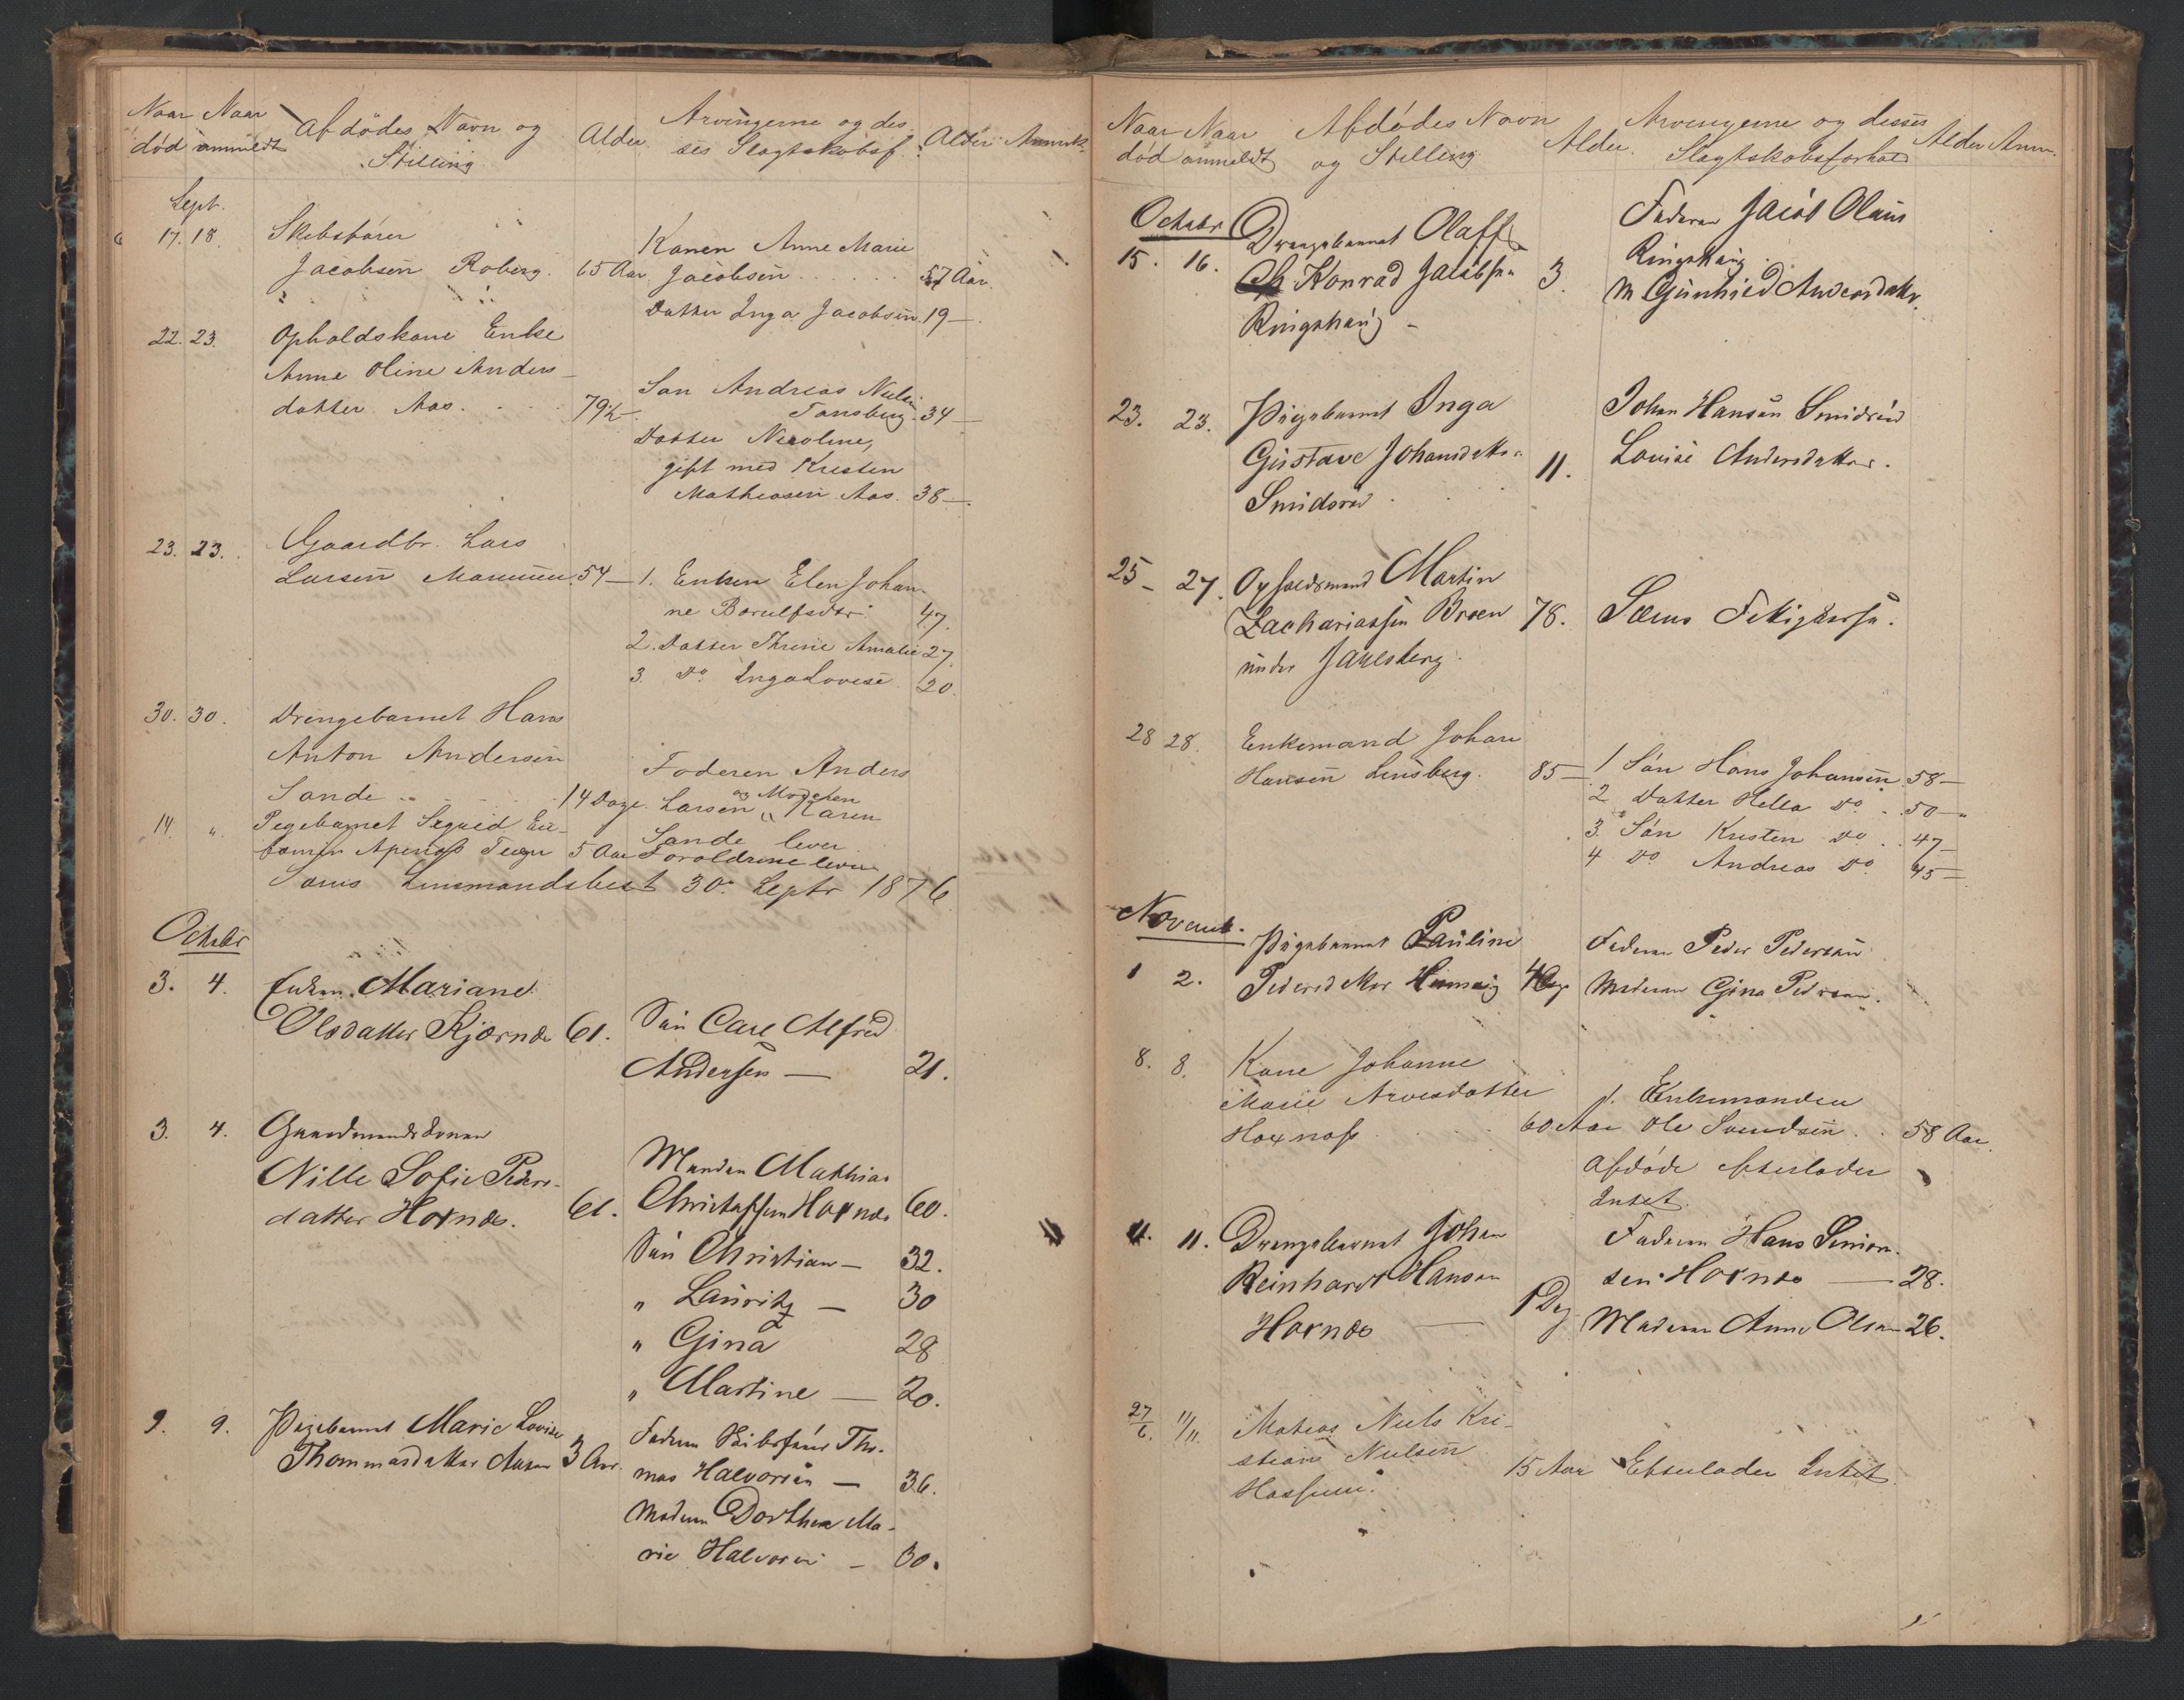 Naar død
Naar anmeldt
Afdødes Navn og Stilling
Alder
Arvingerne og desses Slagtskabsf.
Alder
Anmærk.
Sept.
17. 18. Skibsfører
Jacobsen Roberg. 65 Aar
Konen Anne Marie
Jacobsen . . . 57 Aar.
Datter Inga Jacobsen. 19 —
22. 23. Opholdskone Enke
Anne Oline Anders-
datter Aas. 79½ —
Søn Andreas Nielsen
Tønsberg. 34 —
Datter Nicoline,
gift med Kristen
Mathiasen Aas. 38 —
23. 23. Gaardbr. Lars
Larsen 54 —
1. Enken Elen Johan-
ne 47.
2. Datter Thrine Amalie 27
3. Do Inga Lovise 20.
30. 30. Drengebarnet Hans
Anton Andersen
Sande . . 14 Dage.
Foderen Anders
Larsen og Moderen Karen
Sande lever
14 " Pegebarnet
5 Aar Foroldrene lever
Sems Lensmandsbest 30. Septr 1876
Octobr
3. 4. Enken Mariane
Olsdatter Kjærnæs 61.
Søn Carl Alfred
Andersen — 21.
3. 4. Gaardmandskonen
Nille Sofie Peders-
datter Hoxnæs. 61.
Manden Mathias
Christoffersen Hoxnæs 60.
Søn Christian — 32.
" Lauritz — 30
" Gina 28
" Martine — 20.
9. 9. Pigebarnet Marie Lovise
Thommasdatter 3 Aar.
Faderen Skibsfører Tho-
mas Halvorsen — 36.
Moderen Dorthea Ma-
rie Halvorsen — 30.
Naar død
Naar anmeldt
Afdødes Navn og Stilling
Alder.
Arvingerne og desses Slagtskabsforhold
Alder
Anm.
Octobr
15. 16. Drengebarnet Olaff
Konrad Jacobsen 3.
Ringshaug —
Faderen Jacob Olaus
Ringshaug.
M Gunhild Andersdatter.
23. 23. Pigebarnet Inga
Gustave Johansdatter 11.
Smidsrød
Johan Hansen Smidsrød
Lovise Andersdatter.
25 – 27. Opholdsmand Martin
Zachariassen Breen 78.
under Jarlsberg.
Sems Fattigkasse.
28 28. Enkemand Johan
Hansen Linsberg. 85 —
1 Søn Hans Johansen 58 —
2 Datter Hella Do . 50 —
3. Søn Kristen Do . 47 —
4 Do Andreas Do. 45 —
Novemb.
1 2. Pigebarnet Pauline
Pedersdatter 4 Dage
Faderen Peder Pedersen
Moderen Gina Pedersen.
8. 8. Kone Johanne
Marie Arvesdatter
Hoxnæs . . 60 Aar
1. Enkemanden
Ole Svendsen . . 58 Aar
Afdøde efterlader
Intet.
11. 11. Drengebarnet Johan
Reinhardt Hansen
Hoxnæs — 1 Dag
Faderen Hans Simon-
sen Hoxnæs — 28.
Moderen Anne Olsen 26.
27/6. 11/11. Matias Niels Kri-
stian Nielsen
Hassum. 15 Aar Efterlader Intet.